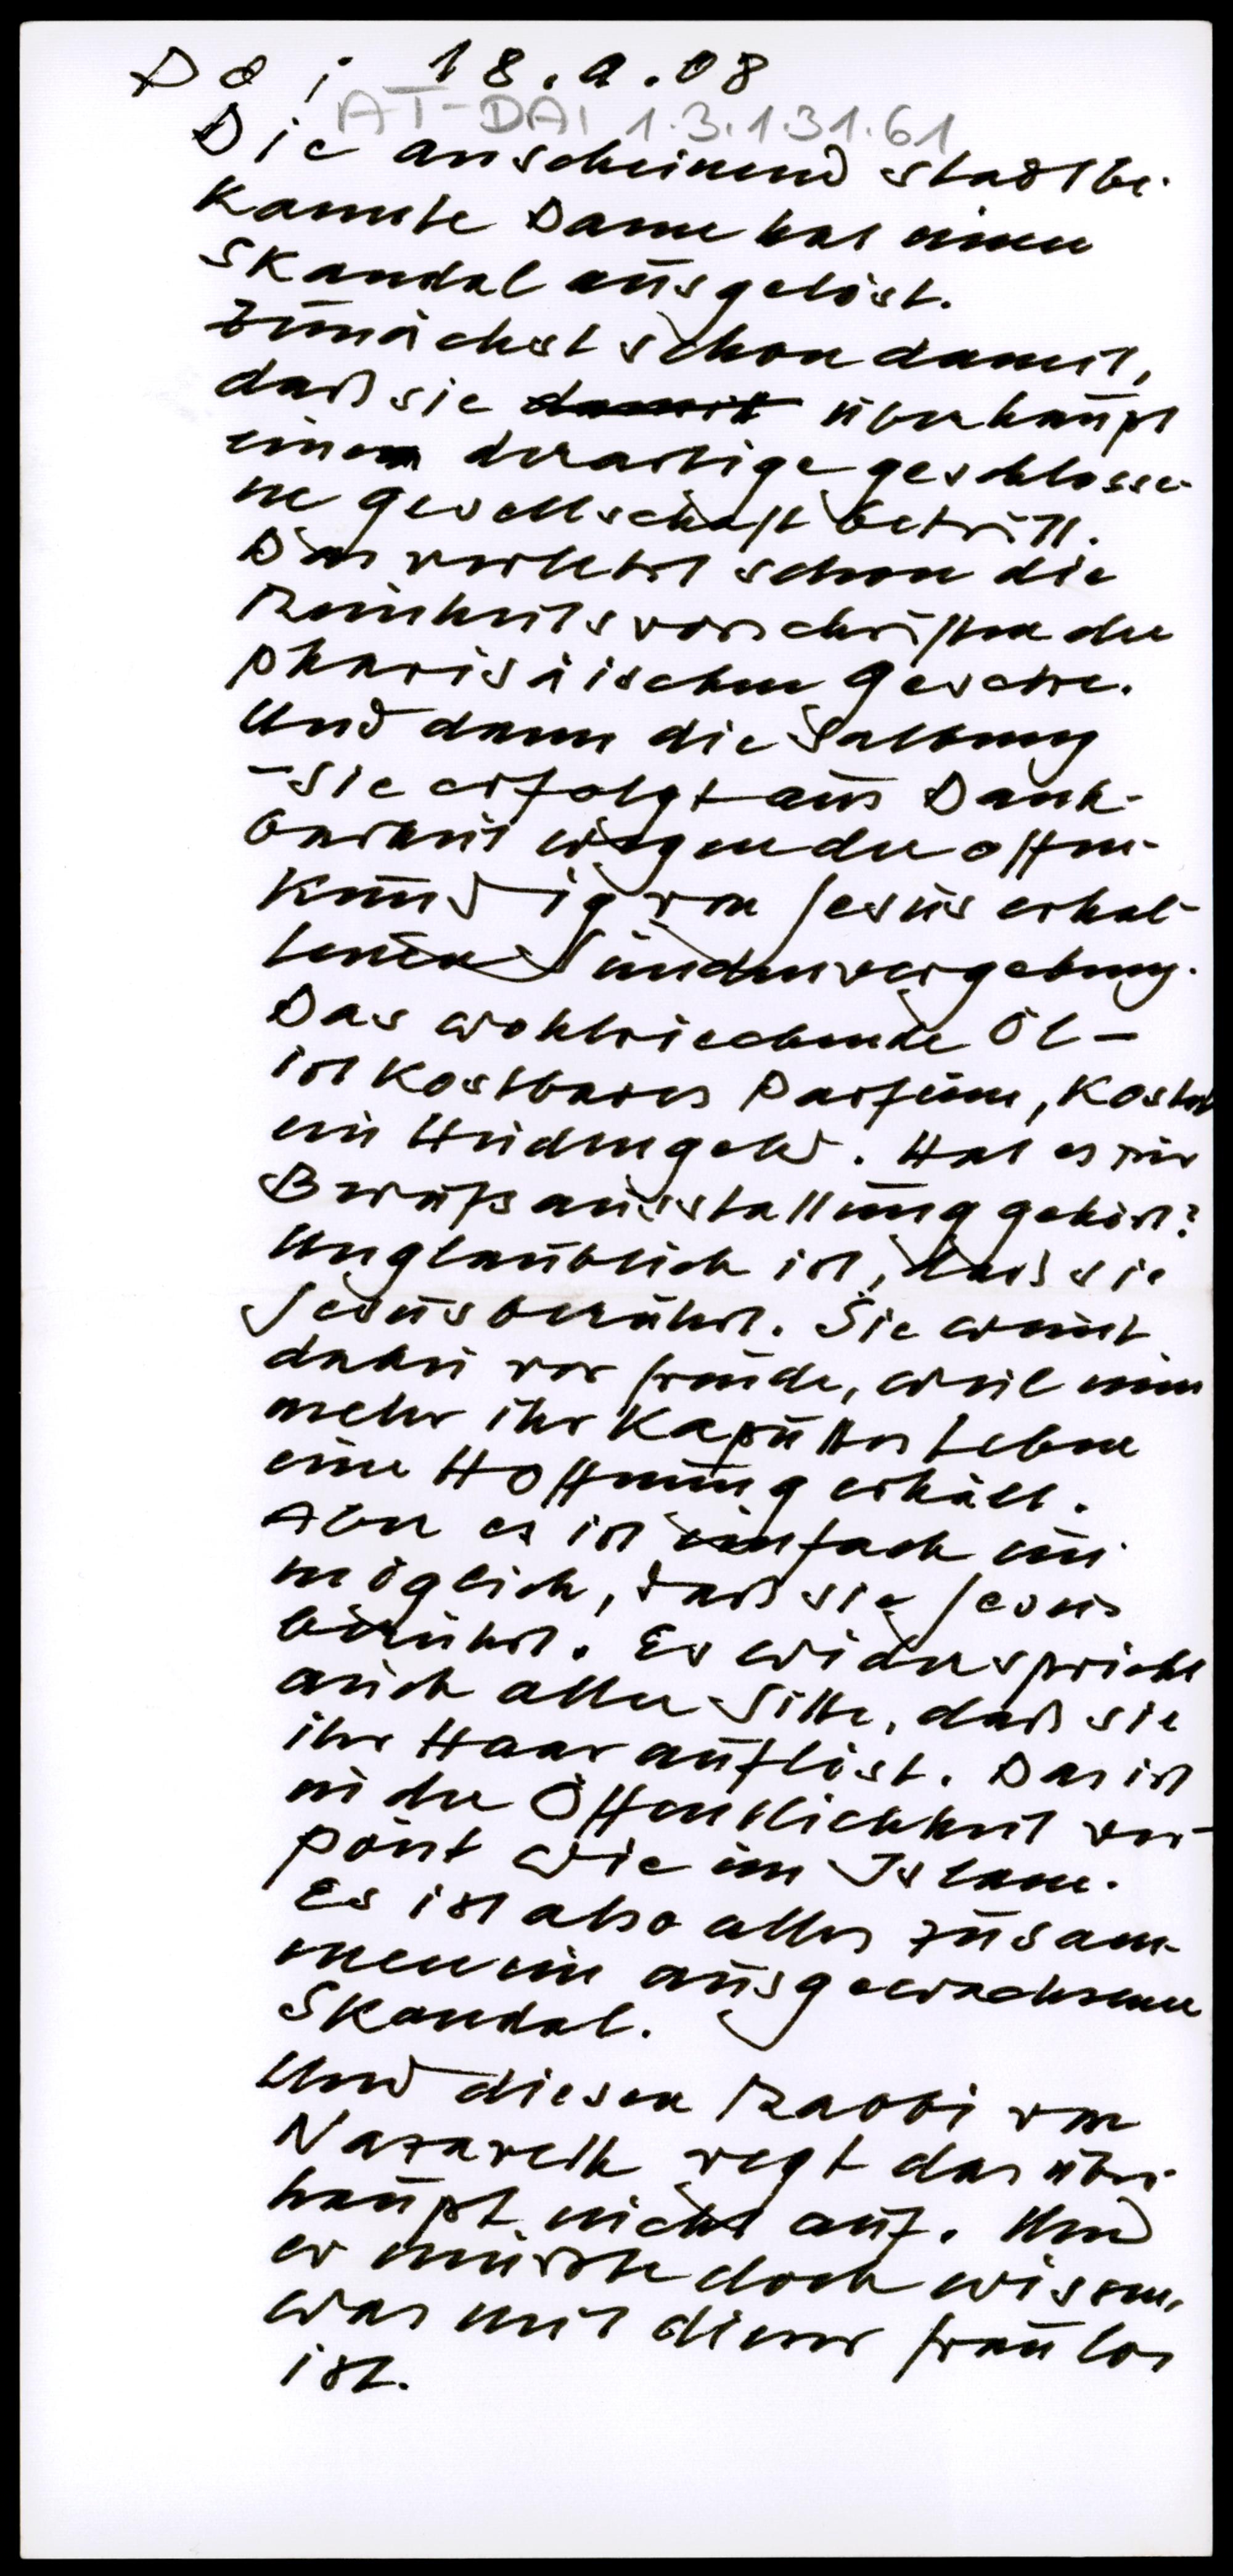 Do; 18.9.08
AT-DAI 1.3.1.31.61
Die anscheinend stadtbe-
kannte Dame hat einen
Skandal ausgelöst.
Zunächst schon damit,
daß sie damit überhaupt
eine derartige geschlosse-
ne Gesellschaft betritt.
Das verletzt schon die
Reinheitsvorschriften der
pharisäischen Gesetze.
Und dann die Salbung
- Sie erfolgt aus Dank-
barkeit wegen der offen-
kundig von Jesus erhal-
tenen Sündenvergebung.
Das wohlriechende Öl -
ist kostbares Parfüm, kostet
ein Heidengeld. Hat es zur
Berufsausstattung gehört?
Unglaublich ist, dass sie
Jesus berührt. Sie weint
dabei vor Freude, weil nun
mehr ihr kaputtes Leben
eine Hoffnung erhält.
Aber es ist einfach un-
möglich, daß sie Jesus
berührt. Es widerspricht
auch aller Sitte, daß sie
ihr Haar auflöst. Das ist
in der Öffentlichkeit ver-
pönt wie im Islam.
Es ist also alles zusam-
men ein ausgewachsener
Skandal.
Und diesen Rabbi von
Nazareth regt das über-
haupt nicht auf. Und
er müsste doch wissen,
was mit dieser Frau los
ist.